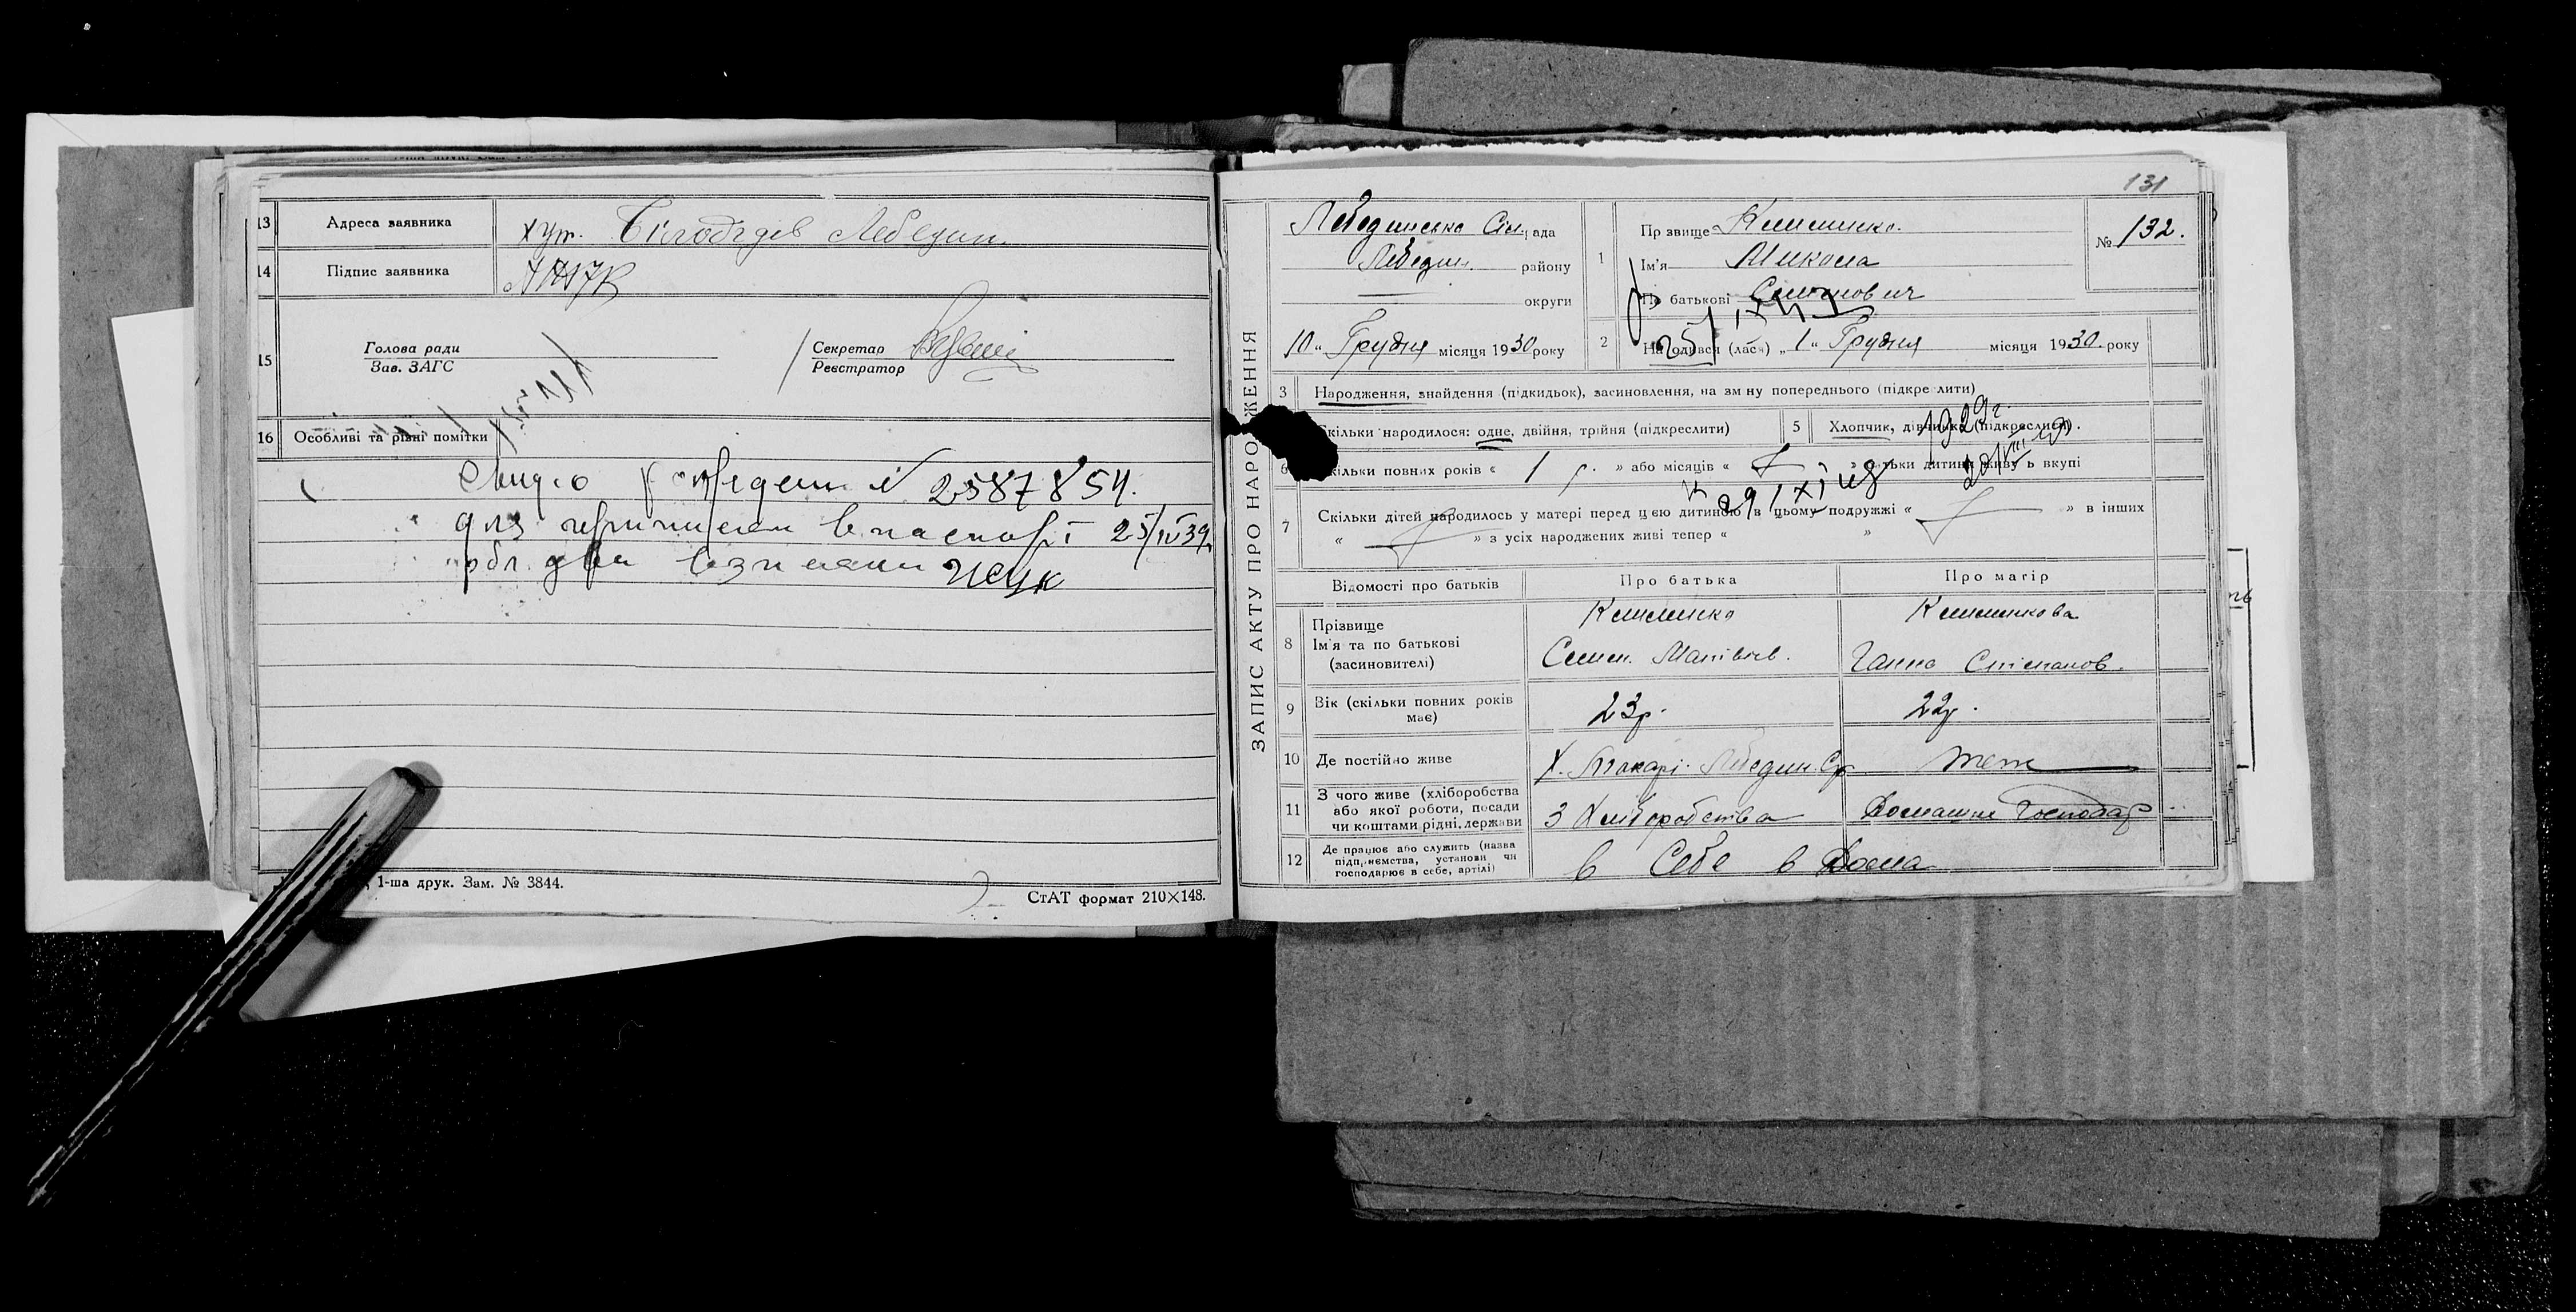 13 Адреса заявника хут. Білообідів Лебедин.
14 Підпис заявника
15 Голова ради
Зав. ЗАГС
Секретар
Реєстратор
16 Особливі та різні помітки
№ 2587854.
для в паспорт 25/IV 39
1-ша друк. Зам. № 3844.
СтАТ формат 210×148.
131
ЗАПИС АКТУ ПРО НАРОДЖЕННЯ
Лебединська Сіл. рада
Лебедин. району
округи
10 „ Грудня місяця 1930 року
1 Прізвище Клименко.
Ім'я Микола
По батькові Семенович
№ 132.
25/
2 Народився (лася) „ 1 “ Грудня місяця 1930 року
3 Народження, знайдення (підкидьок), засиновлення, на зміну попереднього (підкреслити)
Скільки народилося: одне, двійня, трійня (підкреслити)
5 Хлопчик, дівчинка (підкреслити).
1929 г.
6 Скільки повних років « 1 р. » або місяців « » батьки дитини живуть вкупі
29/XI
7 Скільки дітей народилось у матері перед цією дитиною в цьому подружжі « » в інших
« » з усіх народжених живі тепер « »
Відомості про батьків Про батька Про матір
8 Прізвище
Ім'я та по батькові
(засновителі)
Клименко
Семен. Матвієв.
Клименкова
Ганна Степанов.
9 Вік (скільки повних років має) 23р. 22р.
10 Де постійно живе Х. Токарі. Лебедин. Ср. теж
11 З чого живе (хліборобства
або якої роботи, посади
чи коштами рідні, держави
З Хліборобства Домашнє Господар
12 Де працює або служить (назва
підприємства, установи чи
господарює в себе, артілі)
в Себе в Дома